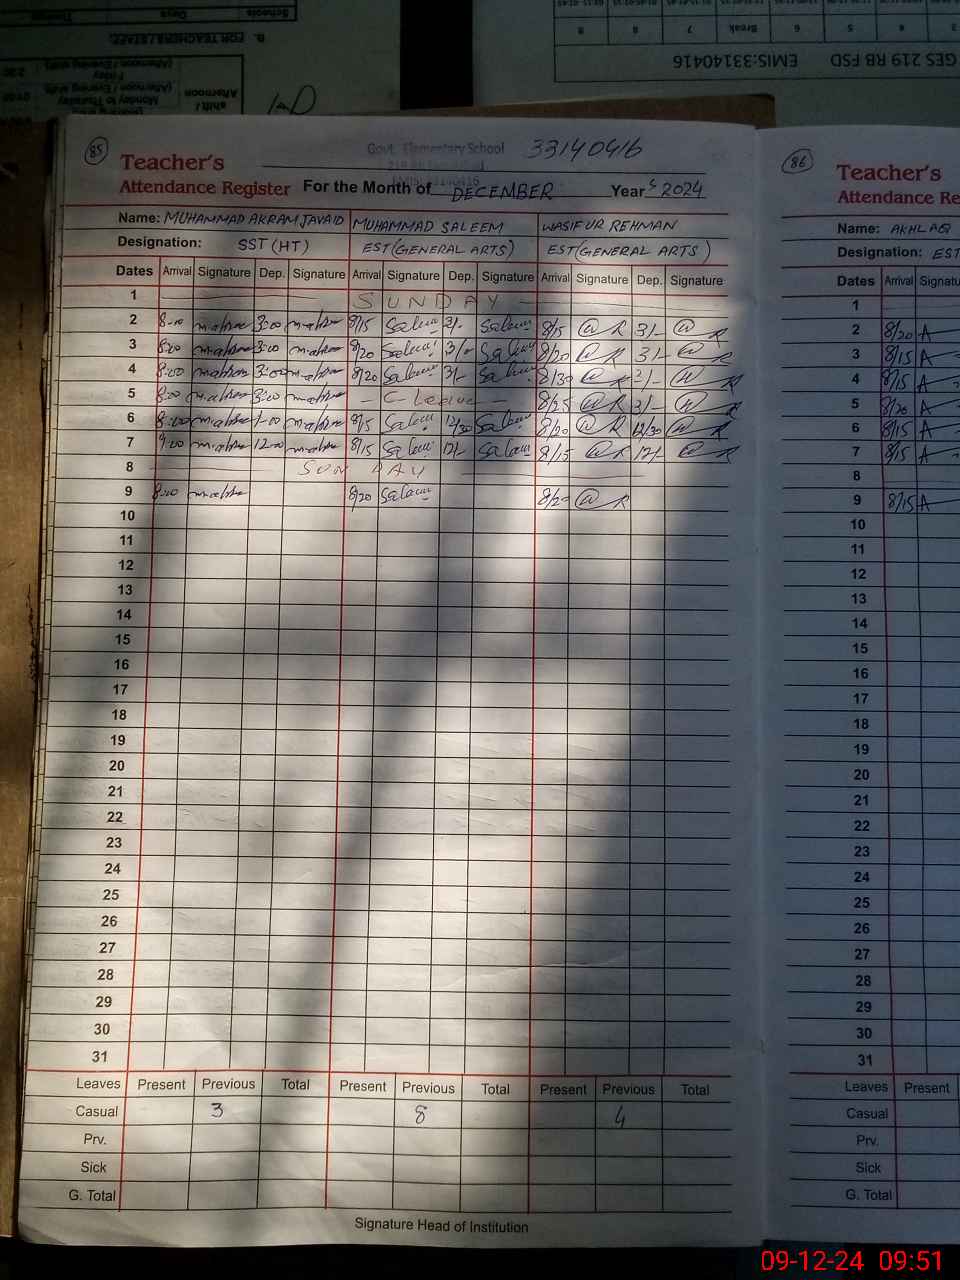 GES 219 RB FSD EMIS:33140416
3 4 5 6 Break 7 8 8
B. FOR TEACHERS / STAFF:
Schools Days Timings
85
Govt. Elementary School 33140416
Teacher's
Attendance Register For the Month of DECEMBER Year 2024
Name: MUHAMMAD AKRAM JAVAID MUHAMMAD SALEEM WASIF UR REHMAN
Designation: SST (HT) EST (GENERAL ARTS) EST (GENERAL ARTS)
Dates Arrival Signature Dep. Signature Arrival Signature Dep. Signature Arrival Signature Dep. Signature
1 SUNDAY
2 8-00 3:00 8/15 Saleem 3/- Saleem 8/15 3/-
3 8:00 3:00 8/20 Saleem 3/- Saleem 8/20 3/-
4 8:00 3:00 8/20 Saleem 3/- Saleem 8/30 3/-
5 8:00 3:00 - C-Leave - 8/25 3/-
6 8:00 1-00 8/15 Saleem 12/30 Saleem 8/20 12/30
7 9:00 12-00 8/15 Saleem 12/- Saleem 8/15 12/-
8 SUN DAY
9 8:00 8/20 Saleem 8/20
10
11
12
13
14
15
16
17
18
19
20
21
22
23
24
25
26
27
28
29
30
31
Leaves Present Previous Total Present Previous Total Present Previous Total
Casual 3 8 4
Prv.
Sick
G. Total
Signature Head of Institution
86
Teacher's
Attendance Re
Name: AKHLAQ
Designation: EST
Dates Arrival Signatu
1
2 8/20 A
3 8/15 A
4 8/15 A
5 8/20 A
6 8/15 A
7 8/15 A
8
9 8/15 A
10
11
12
13
14
15
16
17
18
19
20
21
22
23
24
25
26
27
28
29
30
31
Leaves Present
Casual
Prv.
Sick
G. Total
09-12-24 09:51